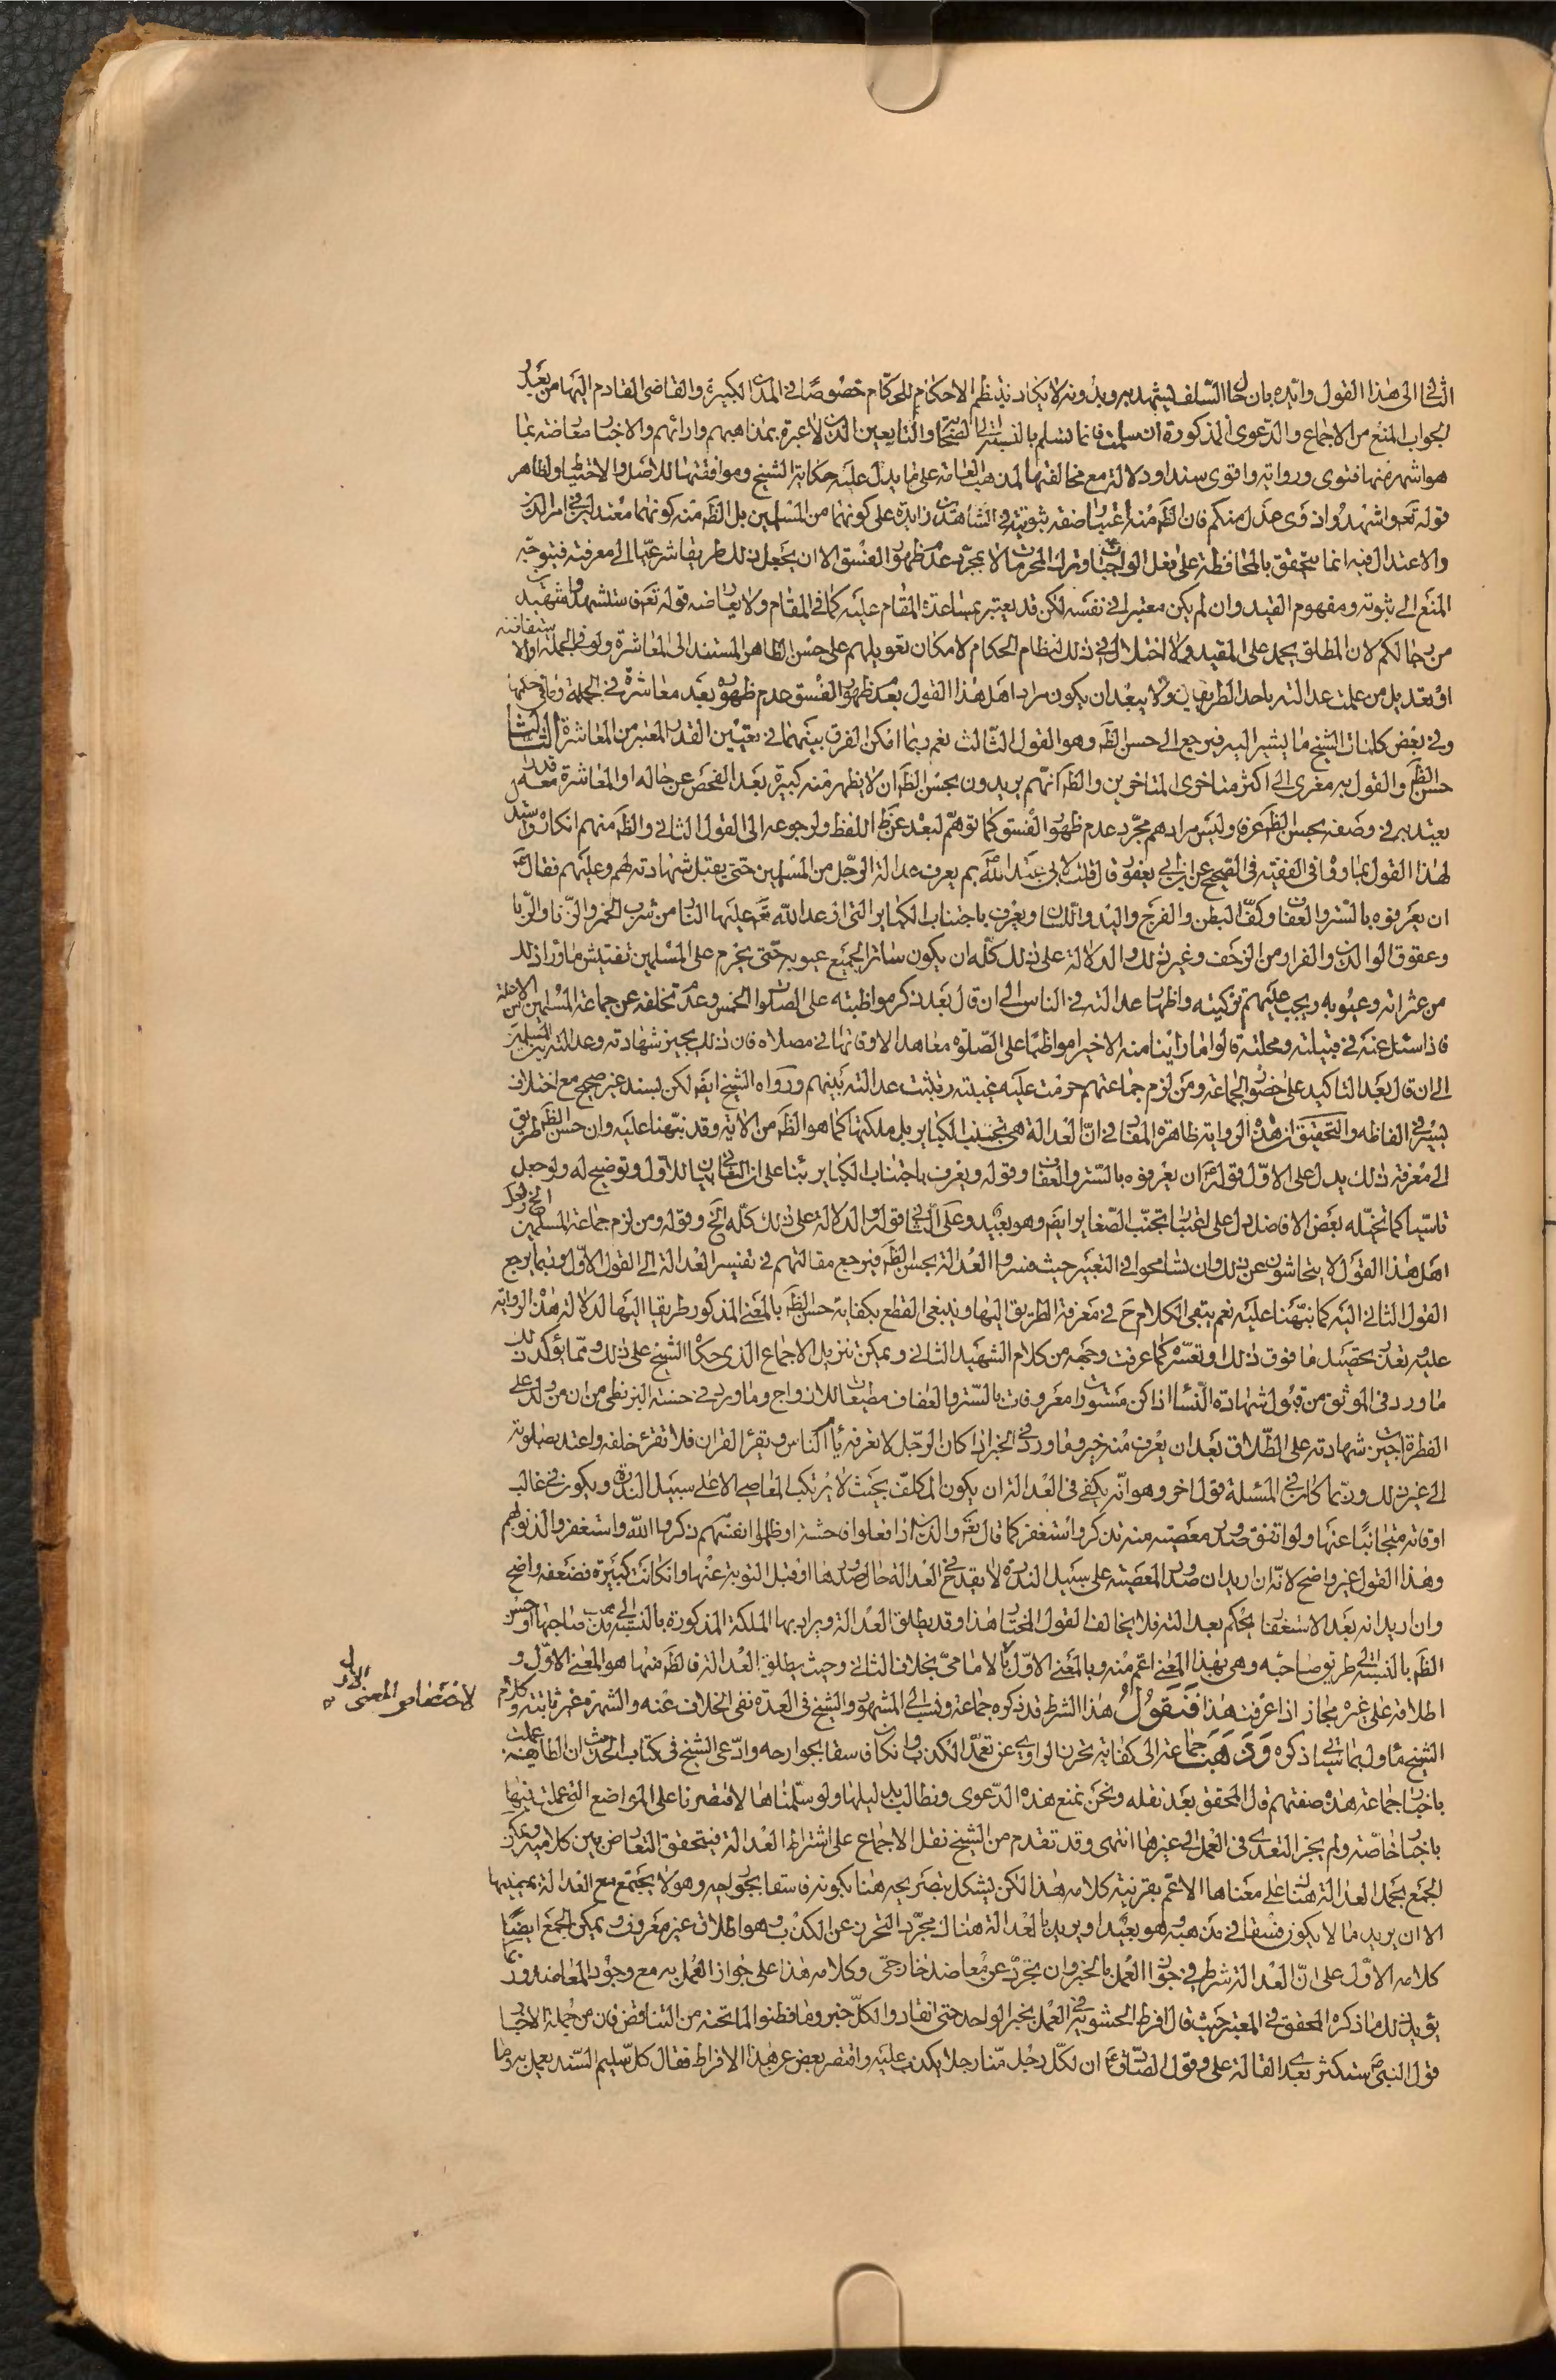 الثانى الى هذا القول وايده بان حال السلف يشهد به وبدونه لا يكاد ينتظم الاحكام للحكام خصوصا فى المدن الكبيرة والقاضى القادم اليها من بعيد
الجواب المنع من الاجماع والدعوى المذكورة ان سلمت فانما تسلم بالنسبة الى الصحابة والتابعين الذين لا عبرة بمذاهبهم وارائهم والاخبار معارضة بما
هو اشهر منها فتوى ورواية واقوى سندا ودلالة مع مخالفتها لمذهب العامة على ما يدل عليه حكاية الشيخ وموافقتها للاصل والاحتياط ولظاهر
قوله تعـ واشهدوا ذوى عدل منكم فان الظـ منه اعتبار صفة ثبوتية فى الشاهدين زايدة على كونهما من المسلمين بل الظـ منه كونهما معتدلين فى امر الدين
والاعتدال فيه انما يتحقق بالمحافظة على فعل الواجبات وترك المحرمات لا بمجرد عدم ظهور الفسق الا ان يجعل ذلك طريقا شرعيا الى معرفته فيتوجه
المنع الى ثبوته ومفهوم القيد وان لم يكن معتبرا فى نفسه لكن قد يعتبر بمساعدة المقام عليه كما فى المقام ولا يعارضه قوله تعـ فاستشهدوا شهيدين
من رجالكم لان المطلق يحمل على المقيد ولا اختلال فى ذلك لنظام الحكام لامكان تعويلهم على حسن الظاهر المستند الى المعاشرة ولو فى الجملة اولا
او بتعديل من علمت عدالته باحد الطريقين ولا يبعد ان يكون مراد اهل هذا القول بعدم ظهور الفسق عدم ظهوره بعد معاشرة فى الجملة وما فى حكمها
وفى بعض كلمات الشيخ ما يشير اليه فيرجع الى حسن الظـ وهو القول الثالث نعم ربما امكن الفرق بينهما فى تعيين القدر المعتبر من المعاشرة الثالث
حسن الظـ والقول به معزى الى اكثر متاخرى المتاخرين والظـ انهم يريدون بحسن الظـ ان لا يظهر منه كبيرة بعد الفحص عن حاله او المعاشرة معه قدرا
يعتد به فى وصفه بحسن الظـ عرفا وليس مرادهم مجرد عدم ظهور الفسق كما توهم لبعده عن ظـ اللفظ ولرجوعه الى القول الثانى والظـ منهم انكاره واستدل
لهذا القول بما رواه فى الفقيه فى الصحيح عن ابن ابى يعفور قال قلت لابى عبد الله ع بم يعرف عدالة الرجل من المسلمين حتى يقبل شهادته لهم وعليهم فقال ع
ان يعرفوه بالستر والعفاف وكف البطن والفرج واليد واللسان ويعرف باجتناب الكباير التى اوعد الله تعـ عليها النار من شرب الخمر والزنا والربا
وعقوق الوالدين والفرار من الزحف وغير ذلك والدلالة على ذلك كله ان يكون ساترا لجميع عيوبه حتى يحرم على المسلمين تفتيش ما وراء ذلك
من عثراته وعيوبه ويجب عليهم تزكيته واظهار عدالته فى الناس الى ان قال بعد ذكر مواظبته على الصلوات الخمس وعدم تخلفه عن جماعة المسلمين الا من علة
فاذا سئل عنه فى قبيلته ومحلته قالوا ما راينا منه الا خيرا مواظبا على الصلوة معاهدا لاوقاتها فى مصلاه فان ذلك يجيز شهادته وعدالته بين المسلمين
الى ان قال بعد التاكيد على حضور الجماعة ومن لزم جماعتهم حرمت عليه غيبته وثبتت عدالته بينهم ورواه الشيخ ايضـ لكن بسند غير صحيح مع اختلاف
يسير فى الفاظه والتحقيق ان هذه الرواية ظاهرة المفاد فى ان العدالة هى تجنب الكباير بل ملكتها كما هو الظـ من الاية وقد نبهنا عليه وان حسن الظـ طريق
الى معرفة ذلك يدل على الاول قوله ع ان يعرفوه بالستر والعفاف وقوله ويعرف باجتناب الكباير بناء على ان الثانى بيان للاول وتوضيح له ولو جعل
تاسيسا كما تخيله بعض الافاضل دل على اعتبار تجنب الصغاير ايضـ وهو بعيد وعلى الثانى قوله والدلالة على ذلك كله الخ وقوله ومن لزم جماعة المسلمين الخ ولعل
اهل هذا القول لا يتحاشون عن ذلك وان تسامحوا فى التعبير حيث فسروا العدالة بحسن الظـ فيرجع مقالتهم فى تفسير العدالة الى القول الاول وربما يرجع
القول الثانى اليه كما نبهنا عليه نعم يبقى الكلام ح فى معرفة الطريق اليها وينبغى القطع بكفاية حسن الظـ بالمعنى المذكور طريقا اليها لدلالة هذه الرواية
عليه وتعذر تحصيل ما فوق ذلك او تعسره كما عرفت وجهه من كلام الشهيد الثانى ويمكن تنزيل الاجماع الذى حكاه الشيخ على ذلك ومما يؤكد ذلك
ما ورد فى الموثق من قبول شهادة النساء اذا كن مستورات معروفات بالستر والعفاف مطيعات للازواج وما ورد فى حسنة البزنطى من ان من ولد على
الفطرة اجيزت شهادته على الطلاق بعد ان يعرف منه خير وما ورد فى الخبر اذا كان الرجل لا تعرفه يؤم الناس ويقرء القران فلا تقرء خلفه واعتد بصلوته
الى غير ذلك وربما كان فى المسئلة قول اخر وهو انه يكفى فى العدالة ان يكون المكلف بحيث لا يرتكب المعاصى الا على سبيل الندرة ويكون فى غالب
اوقاته متجانبا عنها ولو اتفق صدور معصية منه تذكر واستغفر كما قال تعـ والذين اذا فعلوا فاحشة او ظلموا انفسهم ذكروا الله واستغفروا لذنوبهم
وهذا القول غير واضح لانه ان اريد ان صدور المعصية على سبيل الندرة لا يقدح فى العدالة حال صدورها او قبل التوبة عنها وان كانت كبيرة فضعفه واضح
وان اريد انه بعد الاستغفار يحكم بعدالته فلا يخالف القول المختار هذا وقد يطلق العدالة ويراد بها الملكة المذكورة بالنسبة الى مذهب صاحبها او حسن
الظـ بالنسبة الى طريق صاحبه وهى بهذا المعنى اعم منه وبالمعنى الاول لا بالامامى بخلاف الثانى وحيث يطلق العدالة فالظـ منها هو المعنى الاول و
اطلاقه على غيره مجاز اذا عرفت هذا فنقول هذا الشرط قد ذكره جماعة ونسب الى المشهور والشيخ فى العدة نفى الخلاف عنه والشهرة غير ثابتة وكلام
الشيخ ماول بما سياتى ذكره وذهب جماعة الى كفاية تحرز الراوى عن تعمد الكذب وان كان فاسقا بجوارحه وادعى الشيخ فى كتاب الحدث ان الطائفة عملت
باخبار جماعة هذه صفتهم قال المحقق بعد نقله ونحن نمنع هذه الدعوى ونطالب بدليلها ولو سلمناها لاقتصرنا على المواضع التى عملت فيها
باخبار خاصة ولم يجز التعدى فى العمل الى غيرها انتهى وقد تقدم من الشيخ نقل الاجماع على اشتراط العدالة فيتحقق التعارض بين كلاميه ويمكن
الجمع بحمل العدالة هناك على معناها الاعم بقرينة كلامه هذا لكن يشكل بتصريحه هنا بكونه فاسقا بجوارحه وهو لا يجتمع مع العدالة بمعنييها
الا ان يريد ما لا يكون فسقا فى مذهبه وهو بعيد او يريد بالعدالة هناك مجرد التحرز عن الكذب وهو اطلاق غير معروف ويمكن الجمع ايضا
كلامه الاول على ان العدالة شرط فى جواز العمل بالخبر وان تجرد عن معاضد خارجى وكلامه هذا على جواز العمل به مع وجود المعاضد وربما
يؤيد ذلك ما ذكره المحقق فى المعتبر حيث قال افرط الحشوية فى العمل بخبر الواحد حتى انقادوا لكل خبر وما فطنوا لما تحته من التناقض فان من جملة الاخبار
قول النبى ص ستكثر بعدى القالة على وقول الصادق ع ان لكل رجل منا رجلا يكذب عليه واقتصر بعض عن هذا الافراط فقال كل سليم السند يعمل به وما
لاختصاص المعنى الاول